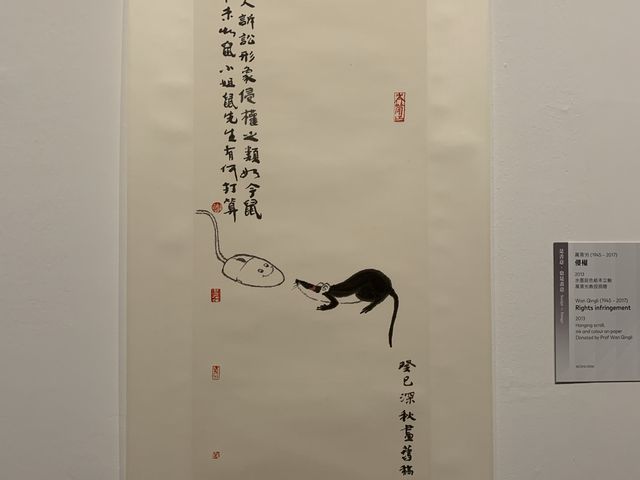 人訴訟形象侵權之類如今鼠
未鼠小姐鼠先生有何打算
癸巳深秋畫舊稿
萬青屴 (1945 - 2017)
侵權
2013
水墨設色紙本立軸
萬青屴教授捐贈
Wan Qingli (1945 - 2017)
Rights infringement
2013
Hanging scroll,
ink and colour on paper
Donated by Prof Wan Qingli